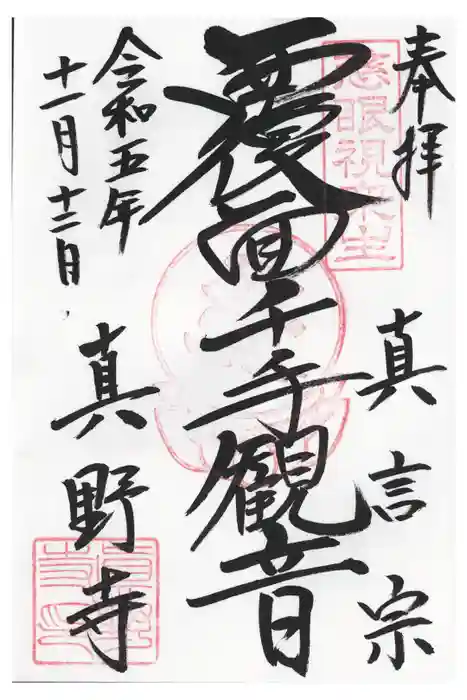 奉拝
真言宗
慈眼視衆生
覆面千手観音
令和五年
十一月十二日
真野寺